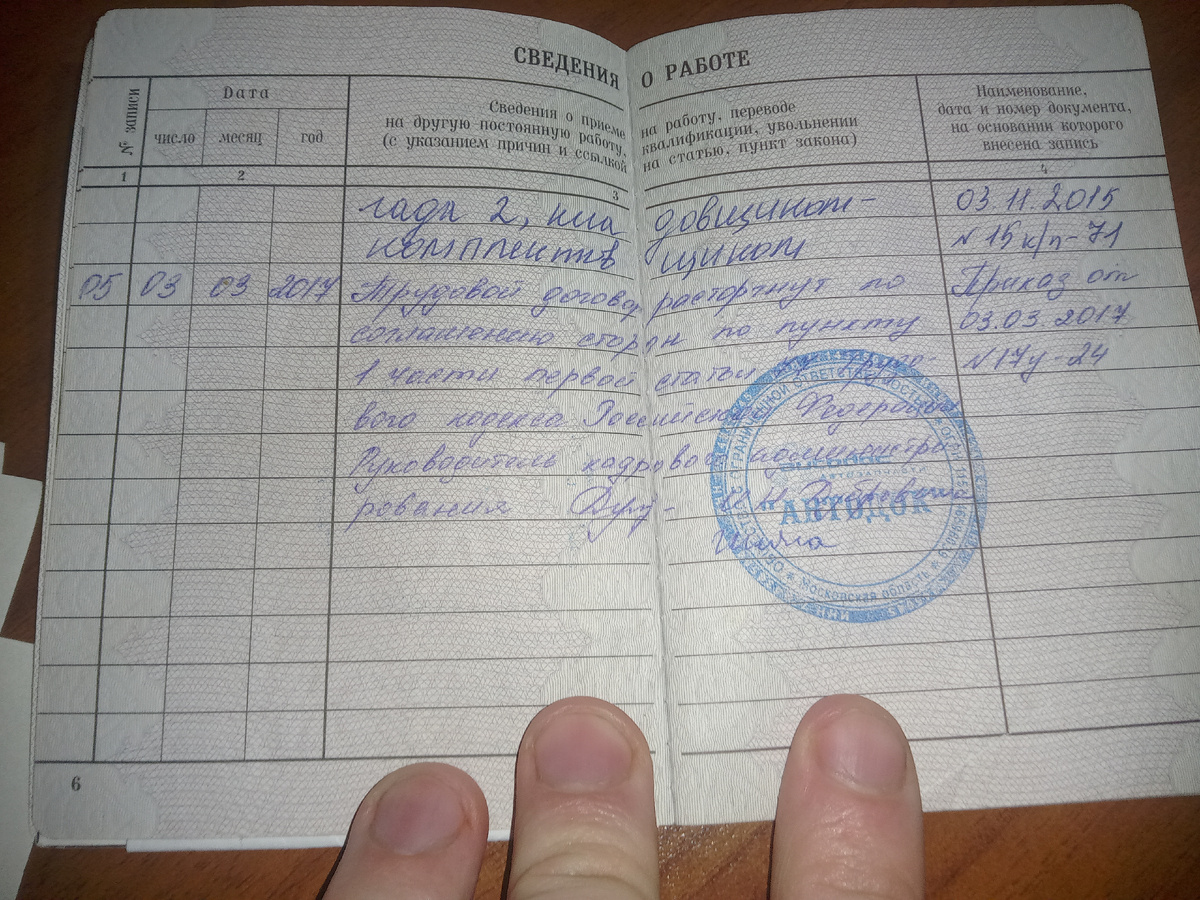 СВЕДЕНИЯ О РАБОТЕ
№ записи
Дата
число месяц год
Сведения о приеме на работу, переводе
на другую постоянную работу, квалификации, увольнении
(с указанием причин и ссылкой на статью, пункт закона)
Наименование,
дата и номер документа,
на основании которого
внесена запись
1 2 3 4
гада 2, кладовщиком- 03.11.2015
комплектовщиком №15к/п-71
05 03 03 2017 Трудовой договор расторгнут по Приказ от
соглашению сторон по пункту 03.03.2017
1 части первой статьи №17у-24
вого кодекса Российской Федерации
Руководитель кадрового администри-
рования
АВТОДОК
Московская область
6